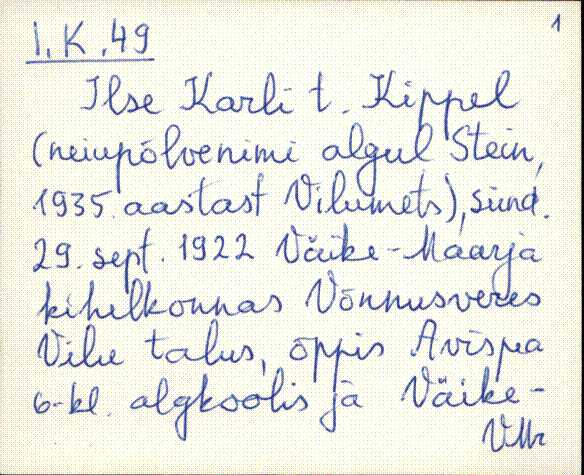 1
I. K. 49
Ilse Karli t. Kippel
(neiupõlvenimi algul Stein,
1935. aastast Vilumets), sünd.
29. sept. 1922 Väike-Maarja
kihelkonnas Võnnusveres
Vilu talus, õppis Avispea
6-kl. algkoolis ja Väike-
VMr